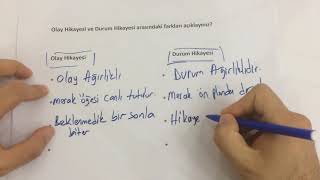 Olay Hikayesi ve Durum Hikayesi arasındaki farkları açıklayınız?
Olay Hikayesi
• Olay Ağırlıklı
• merak öğesi canlı tutulur.
• Beklenmedik bir sonla
biter
Durum Hikayesi
• Durum Ağırlıklıdır.
• Merak ön planda
• Hikaye